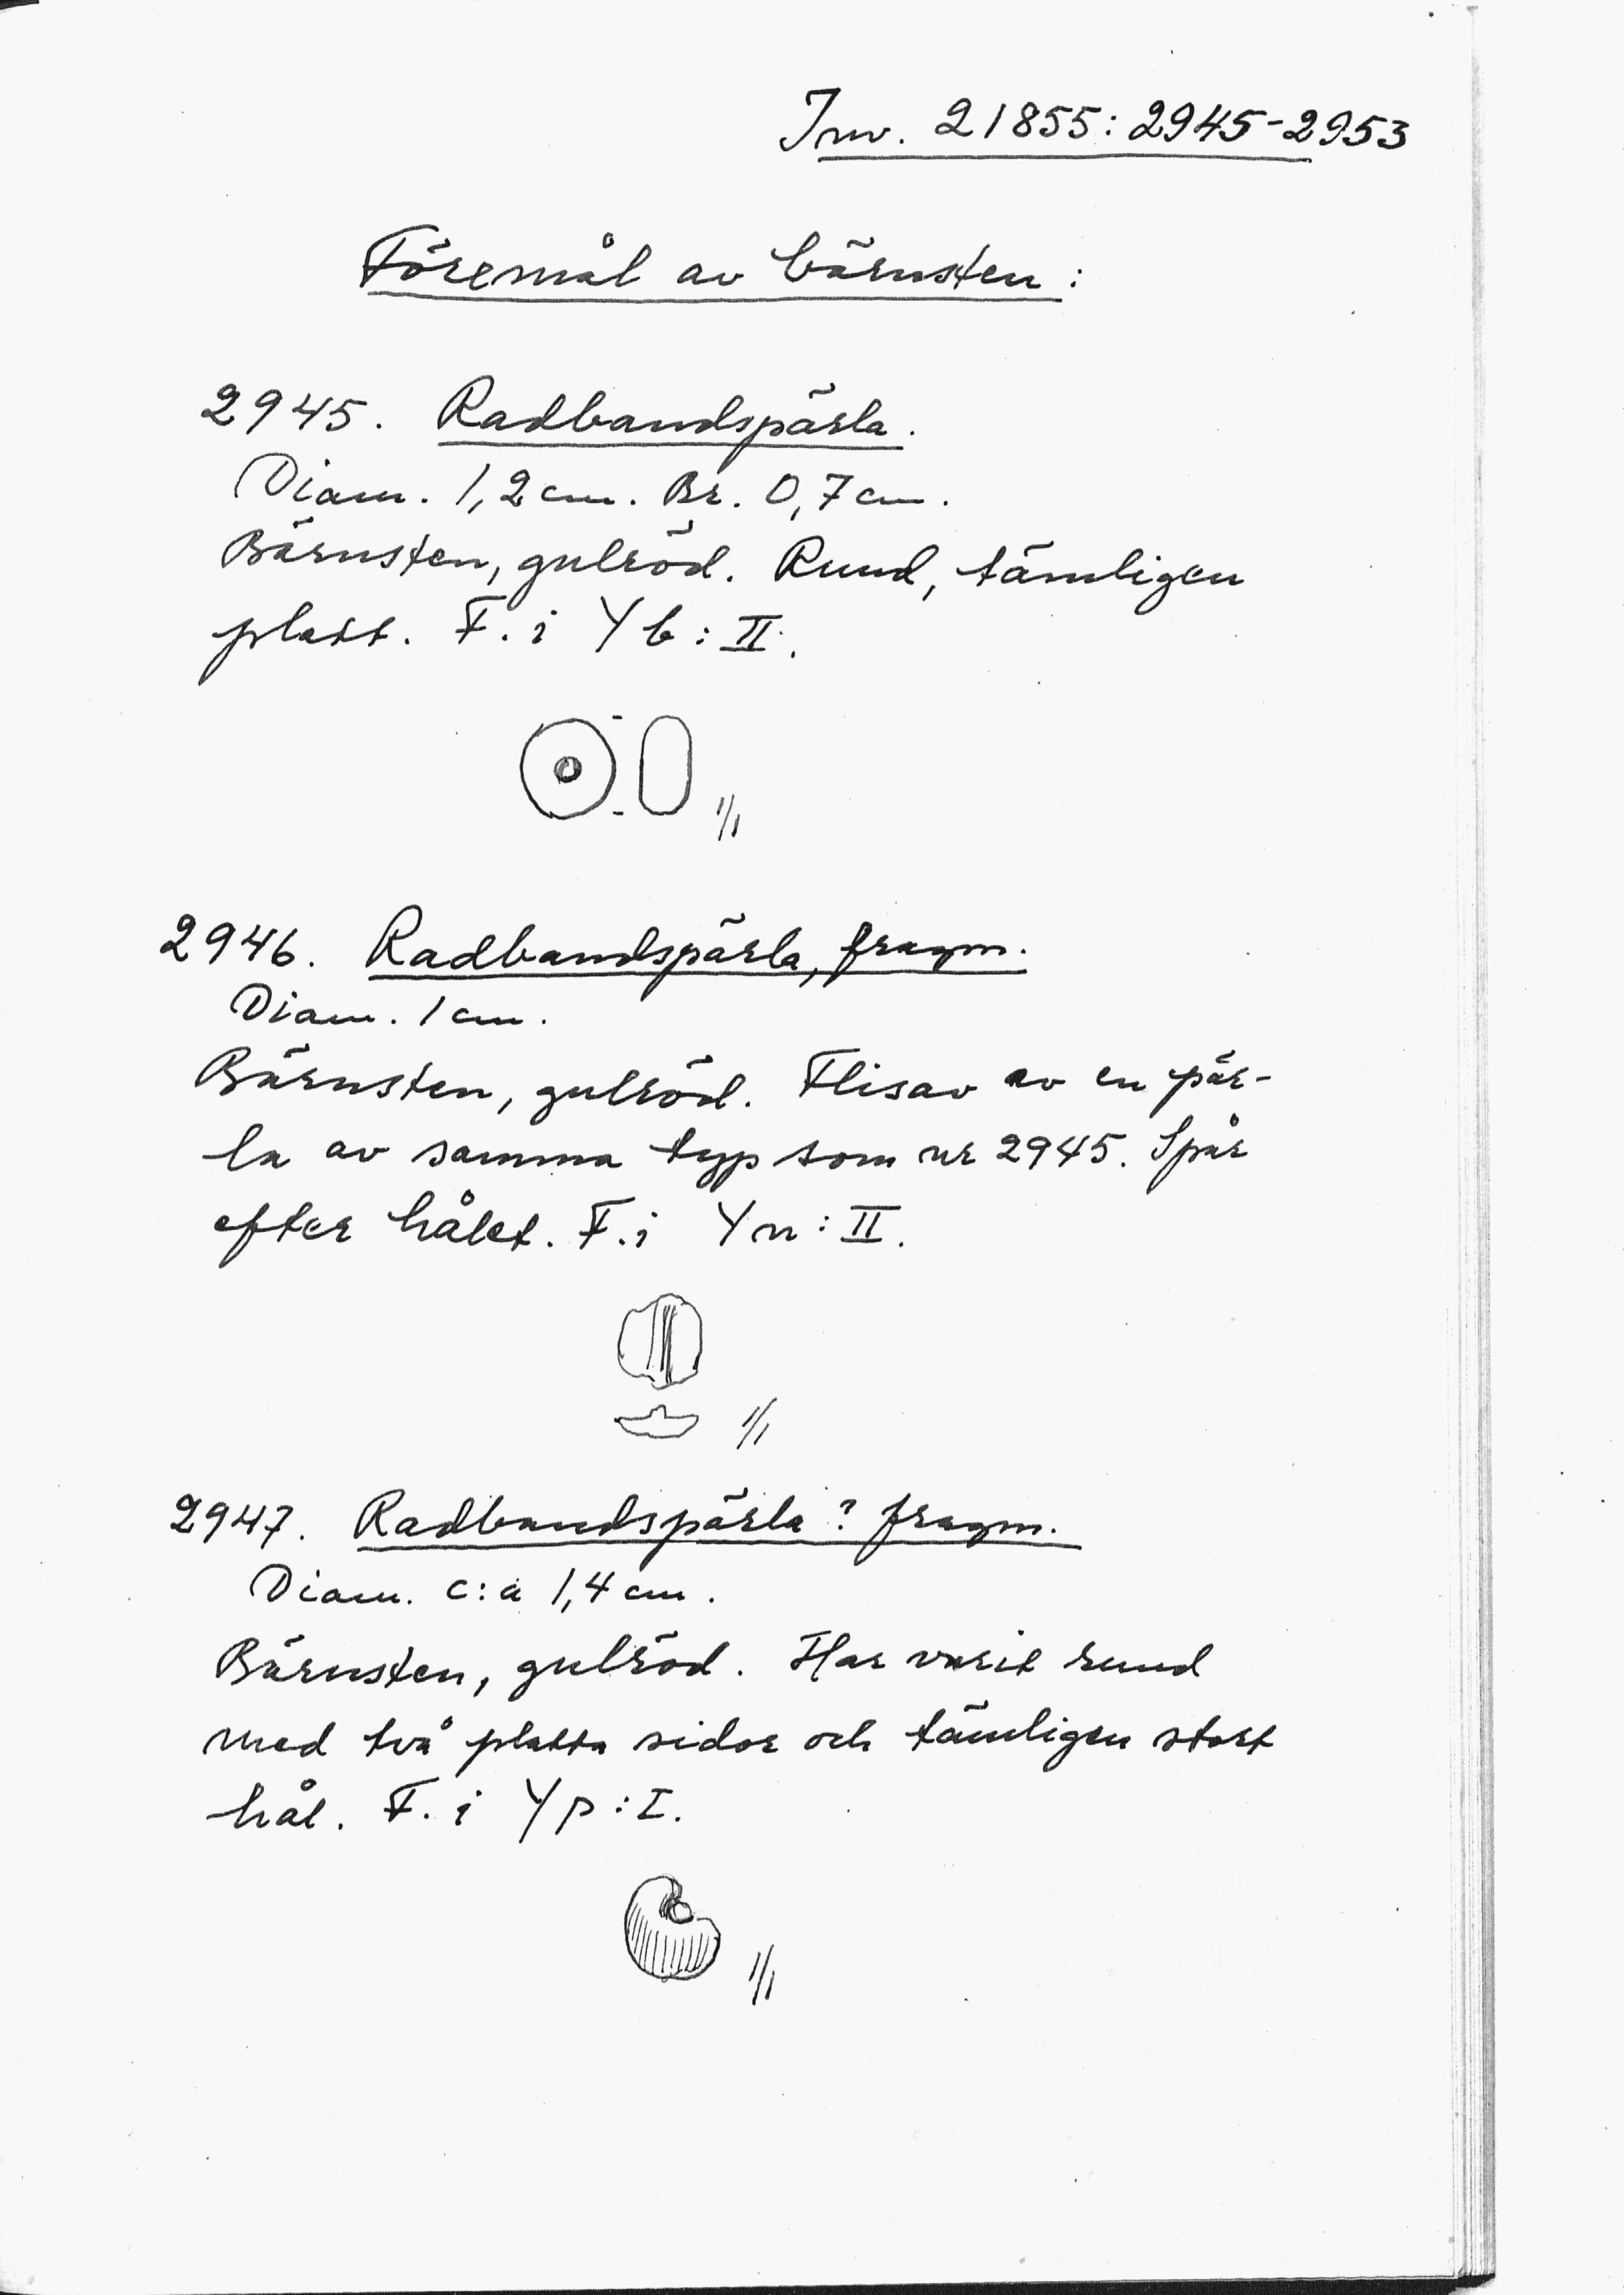 Inv. 21855:2945-2953
Föremål av bärnsten:
2945. Radbandspärla.
Diam. 1,2 cm. Br. 0,7 cm.
Bärnsten, gulröd. Rund, tämligen
platt. F. i Yb:II.
1/1
2946. Radbandspärla, fragm.
Diam. 1 cm.
Bärnsten, gulröd. Flisav av en pär-
la av samma typ som nr 2945. Spår
efter hålet. F. i Yn:II.
1/1
2947. Radbandspärla? fragm.
Diam. c:a 1,4 cm.
Bärnsten, gulröd. Har varit rund
med två platta sidor och tämligen stort
hål. F. i Yp:I.
1/1